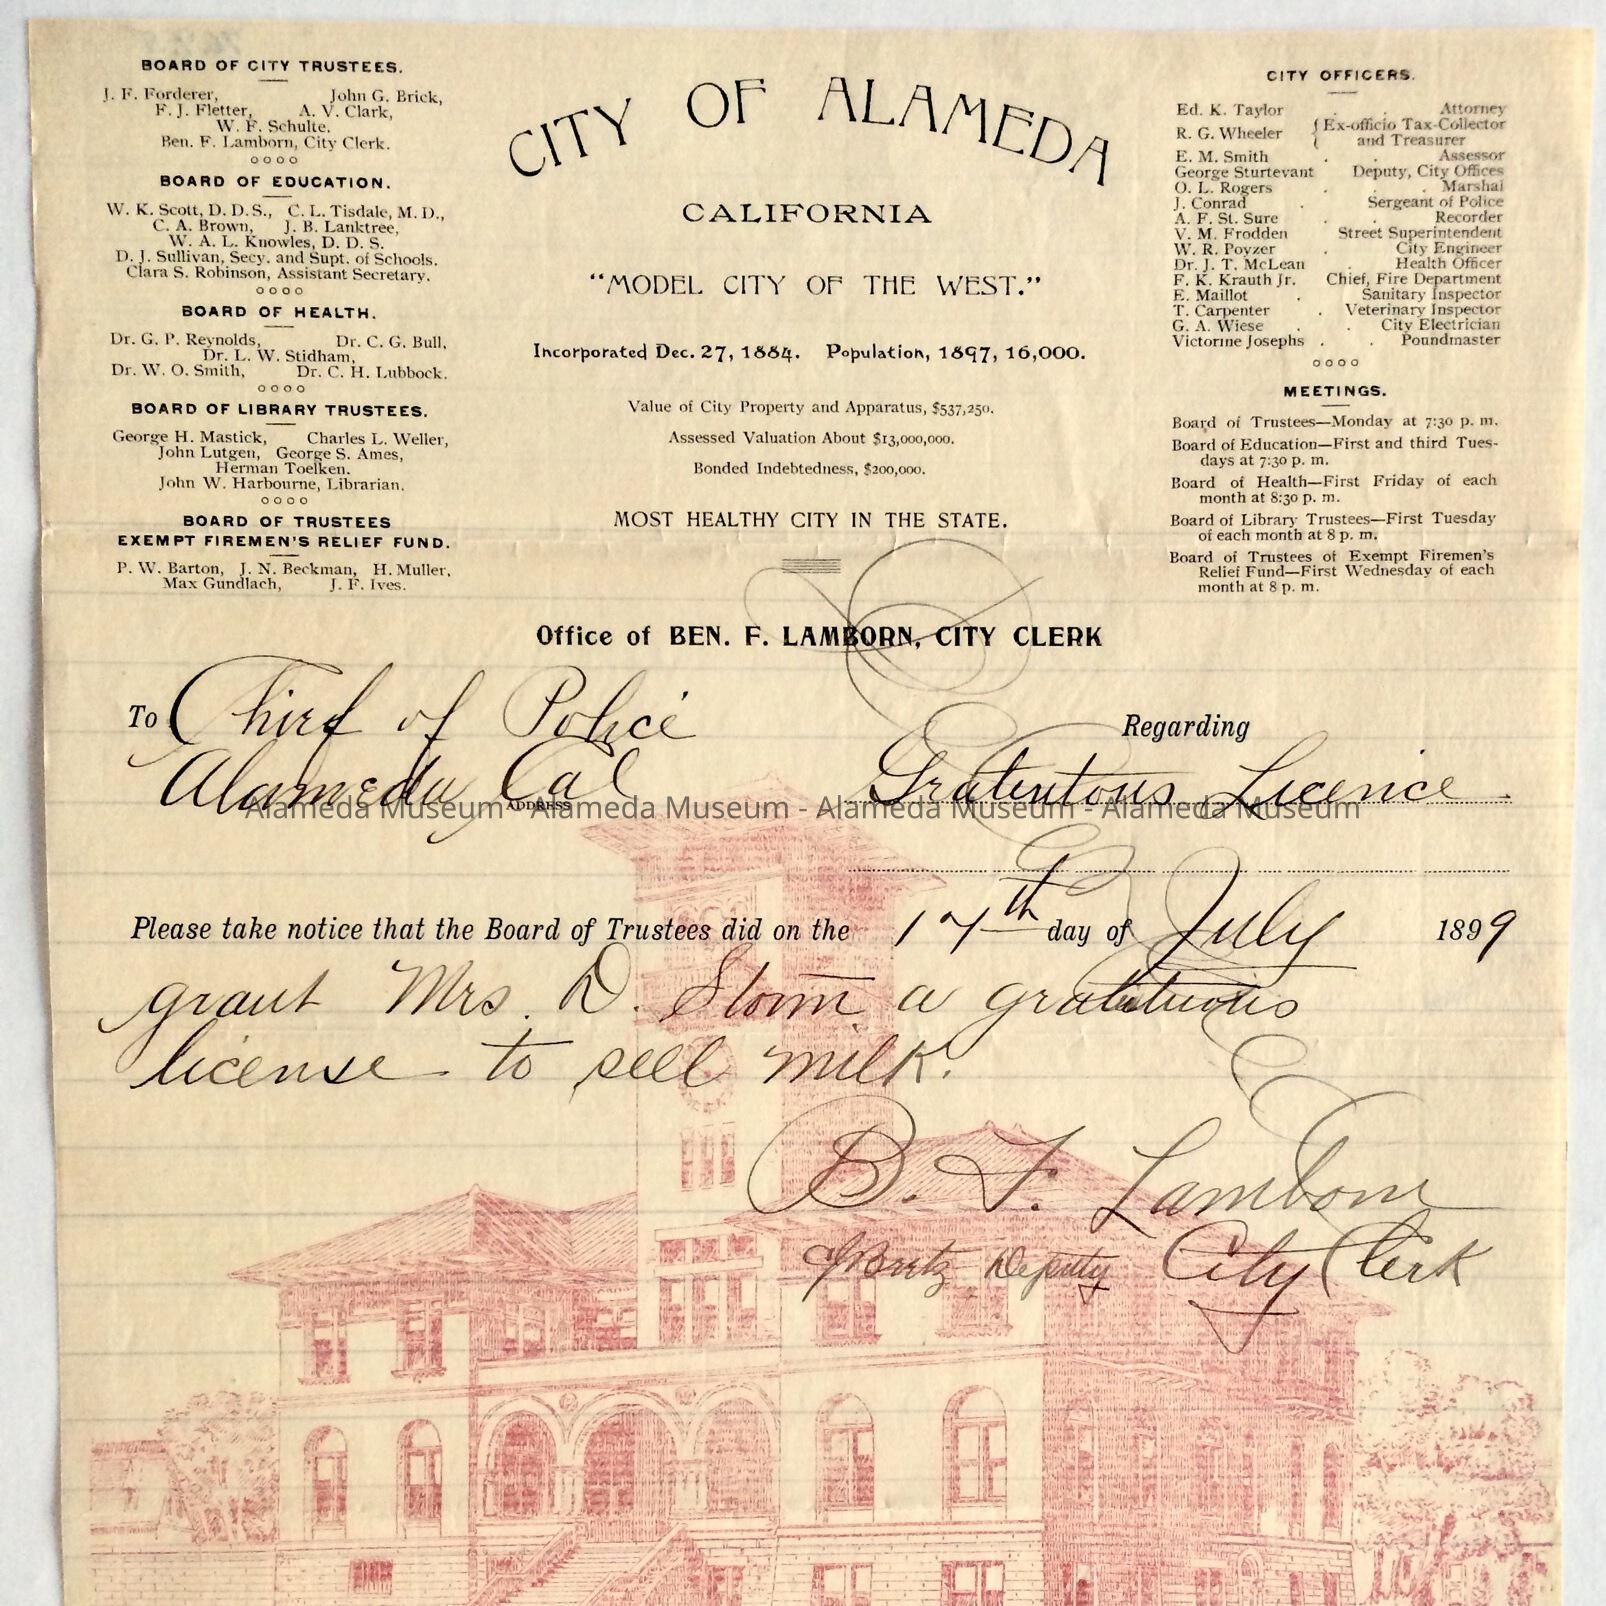 BOARD OF CITY TRUSTEES.
J. F. Forderer, John G. Brick,
F. J. Fletter, A. V. Clark,
W. F. Schulte.
Ben. F. Lamborn, City Clerk.
BOARD OF EDUCATION.
W. K. Scott, D. D. S., C. L. Tisdale, M. D.,
C. A. Brown, J. B. Lanktree,
W. A. L. Knowles, D. D. S.
D. J. Sullivan, Secy. and Supt. of Schools.
Clara S. Robinson, Assistant Secretary.
BOARD OF HEALTH.
Dr. G. P. Reynolds, Dr. C. G. Bull,
Dr. L. W. Stidham,
Dr. W. O. Smith, Dr. C. H. Lubbock.
BOARD OF LIBRARY TRUSTEES.
George H. Mastick, Charles L. Weller,
John Lutgen, George S. Ames,
Herman Toelken.
John W. Harbourne, Librarian.
BOARD OF TRUSTEES
EXEMPT FIREMEN'S RELIEF FUND.
P. W. Barton, J. N. Beckman, H. Muller,
Max Gundlach, J. F. Ives.
CITY OF ALAMEDA
CALIFORNIA
"MODEL CITY OF THE WEST."
Incorporated Dec. 27, 1884. Population, 1897, 16,000.
Value of City Property and Apparatus, $537,250.
Assessed Valuation About $13,000,000.
Bonded Indebtedness, $200,000.
MOST HEALTHY CITY IN THE STATE.
CITY OFFICERS.
Ed. K. Taylor . Attorney
R. G. Wheeler { Ex-officio Tax-Collector
and Treasurer
E. M. Smith . . Assessor
George Sturtevant Deputy, City Offices
O. L. Rogers . . Marshal
J. Conrad . Sergeant of Police
A. F. St. Sure . . Recorder
V. M. Frodden Street Superintendent
W. R. Poyzer . City Engineer
Dr. J. T. McLean . Health Officer
F. K. Krauth Jr. Chief, Fire Department
E. Maillot . Sanitary Inspector
T. Carpenter . Veterinary Inspector
G. A. Wiese . . City Electrician
Victorine Josephs . . Poundmaster
MEETINGS.
Board of Trustees—Monday at 7:30 p. m.
Board of Education—First and third Tues-
days at 7:30 p. m.
Board of Health—First Friday of each
month at 8:30 p. m.
Board of Library Trustees—First Tuesday
of each month at 8 p. m.
Board of Trustees of Exempt Firemen's
Relief Fund—First Wednesday of each
month at 8 p. m.
Office of BEN. F. LAMBORN, CITY CLERK
To Chief of Police
Regarding
Alameda Cal
Gratentous Licence
ADDRESS
Alameda Museum - Alameda Museum - Alameda Museum - Alameda Museum
Please take notice that the Board of Trustees did on the 17th day of July 1899
grant Mrs. D. Storm a gratituous
license to sell milk.
B. F. Lamborn
Deputy City Clerk